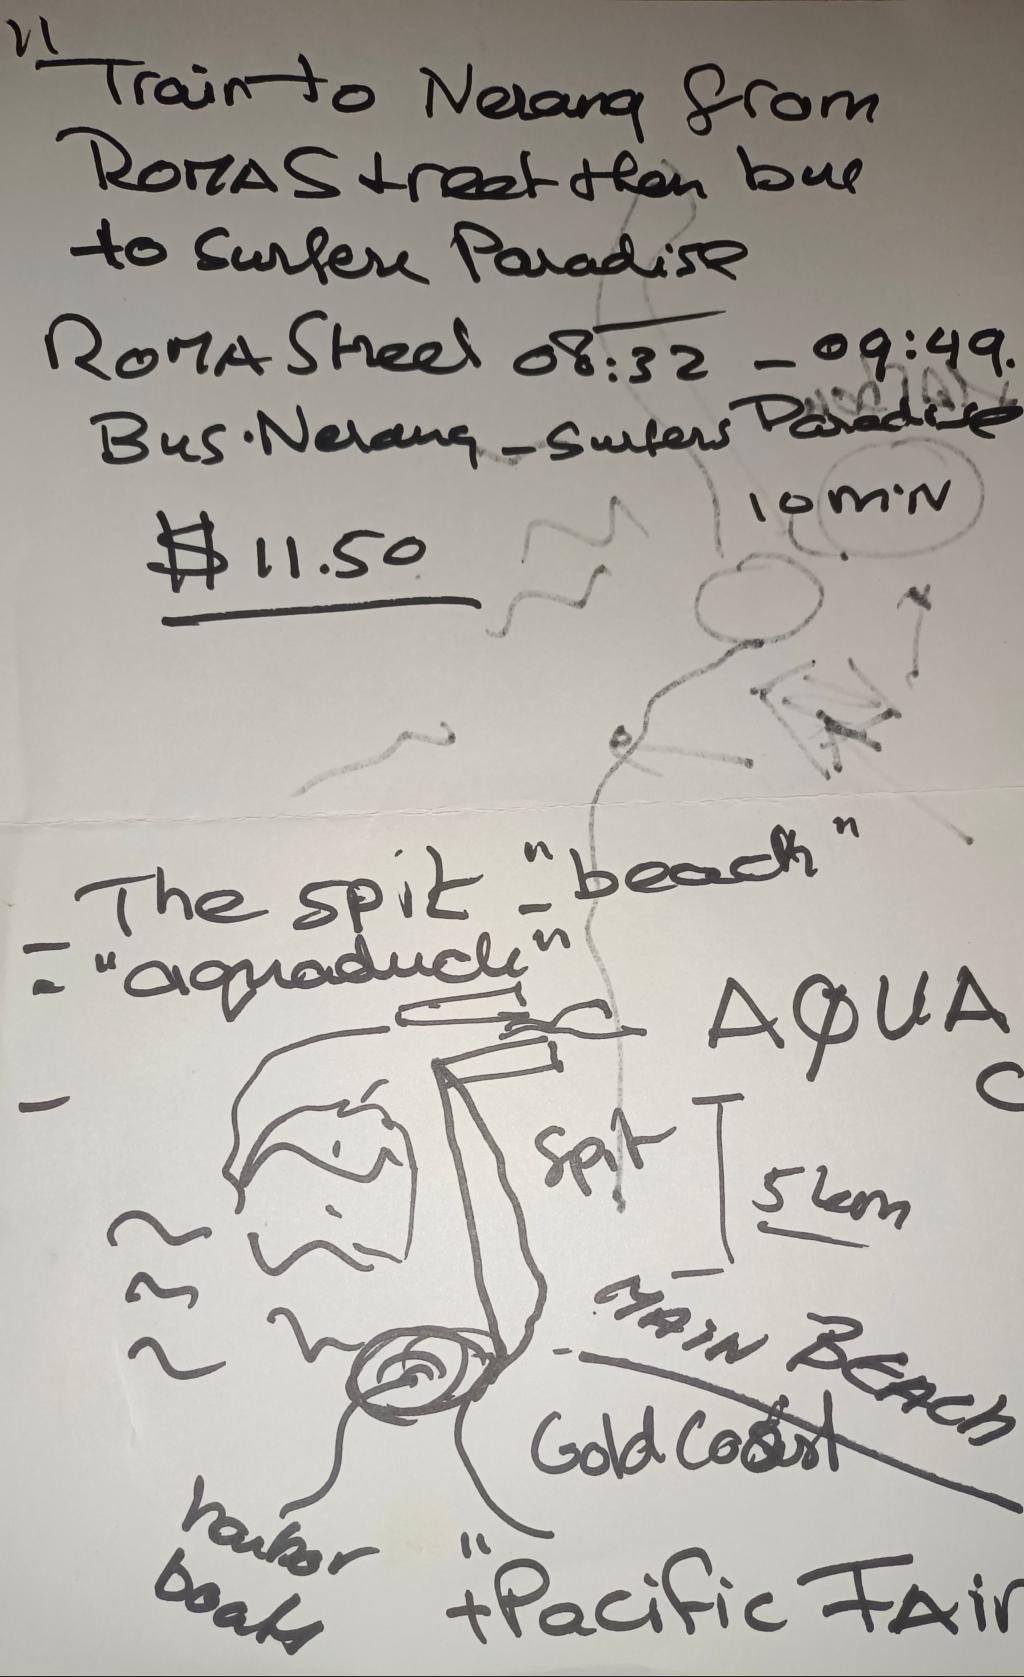 Train to Nerang from
ROMA Street then bus
to Surfers Paradise
ROMA Street 08:32 - 09:49.
Bus. Nerang - Surfers Paradise
10 min
$11.50
The spit - "beach"
- "aquaduck"
AQUA
Spit
5 km
MAIN BEACH
Gold Coast
harbor
boats
+ Pacific FAir